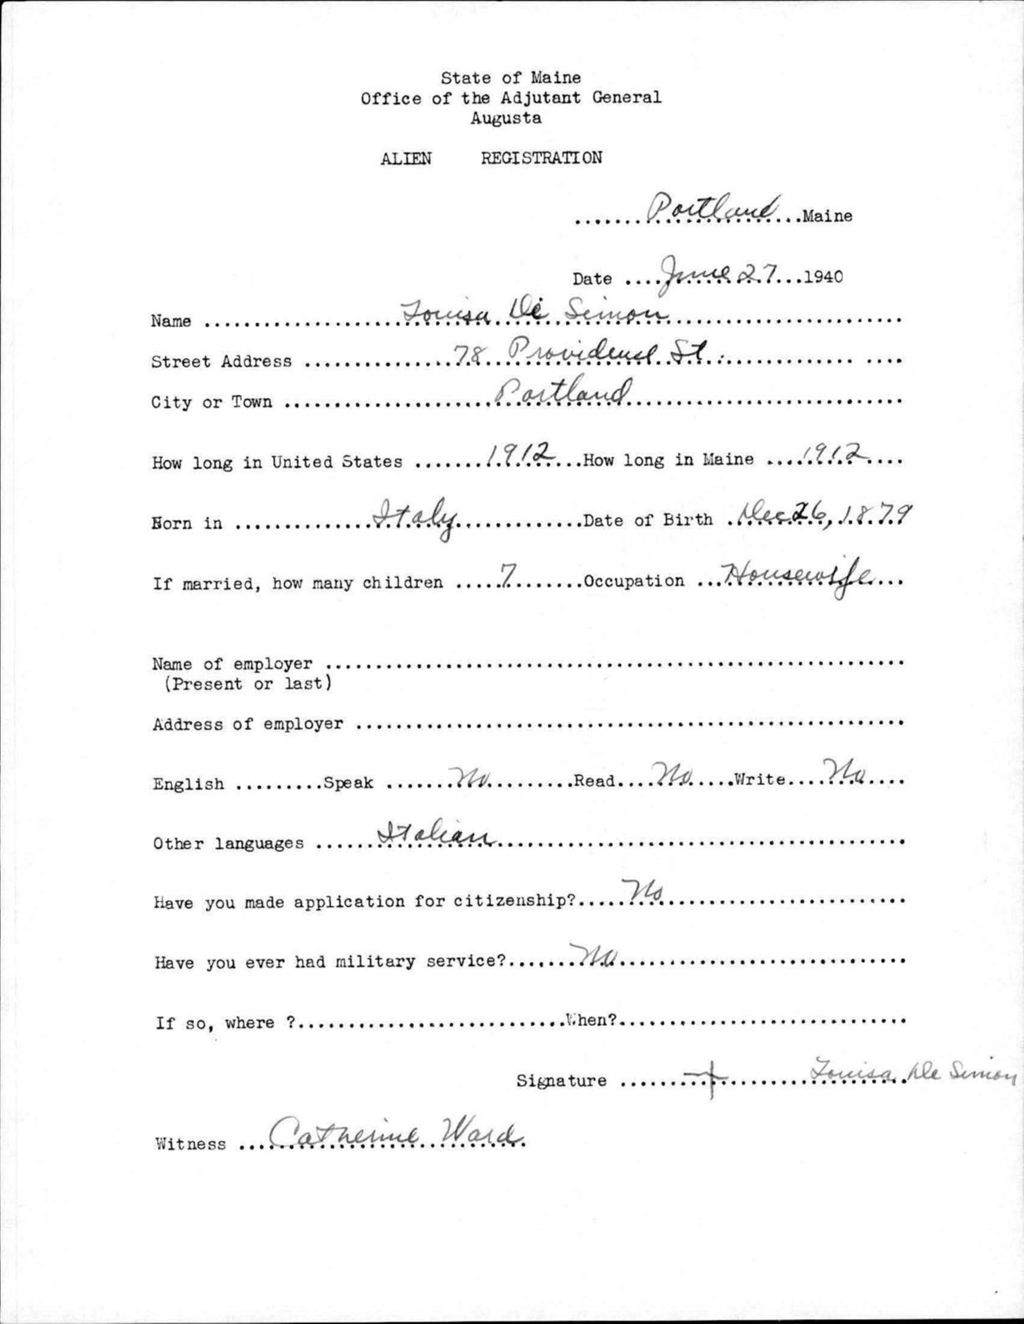 State of Maine
Office of the Adjutant General
Augusta
ALIEN REGISTRATION
.......Portland...Maine
Date ....June 27...1940
Name ....................Louisa De Simon........................
Street Address ...............78 Providence St................. ....
City or Town .....................Portland............................
How long in United States .......1912...How long in Maine ....1912....
Born in ..............Italy.............Date of Birth .Dec 26, 1879
If married, how many children .....7.......Occupation ...Housewife...
Name of employer ...........................................................
(Present or last)
Address of employer ........................................................
English .........Speak .......No.........Read....No.....Write....No....
Other languages ......Italian..........................................
Have you made application for citizenship?.....No.........................
Have you ever had military service?.......No.............................
If so, where ?...........................When?.............................
Signature .......+.........Louisa De Simon
Witness ...Catherine Ward.